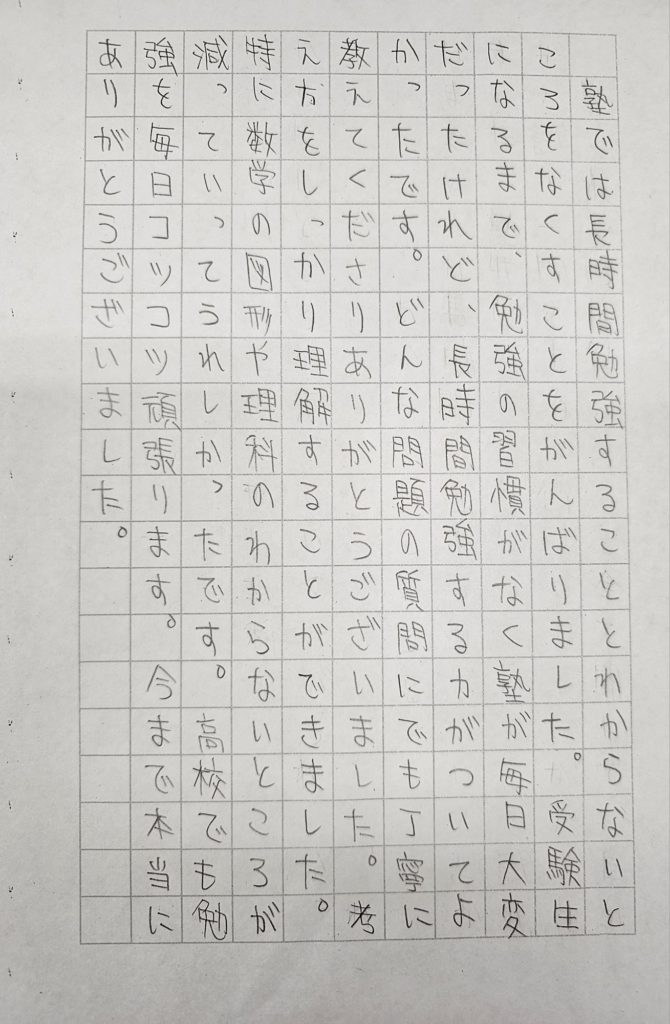 塾では長時間勉強することとわからないと
ころをなくすことをがんばりました。受験生
になるまで、勉強の習慣がなく塾が毎日大変
だったけれど、長時間勉強する力がついてよ
かったです。どんな問題の質問にでも丁寧に
教えてくださりありがとうございました。考
え方をしっかり理解することができました。
特に数学の図形や理科のわからないところが
減っていってうれしかったです。高校でも勉
強を毎日コツコツ頑張ります。今まで本当に
ありがとうございました。